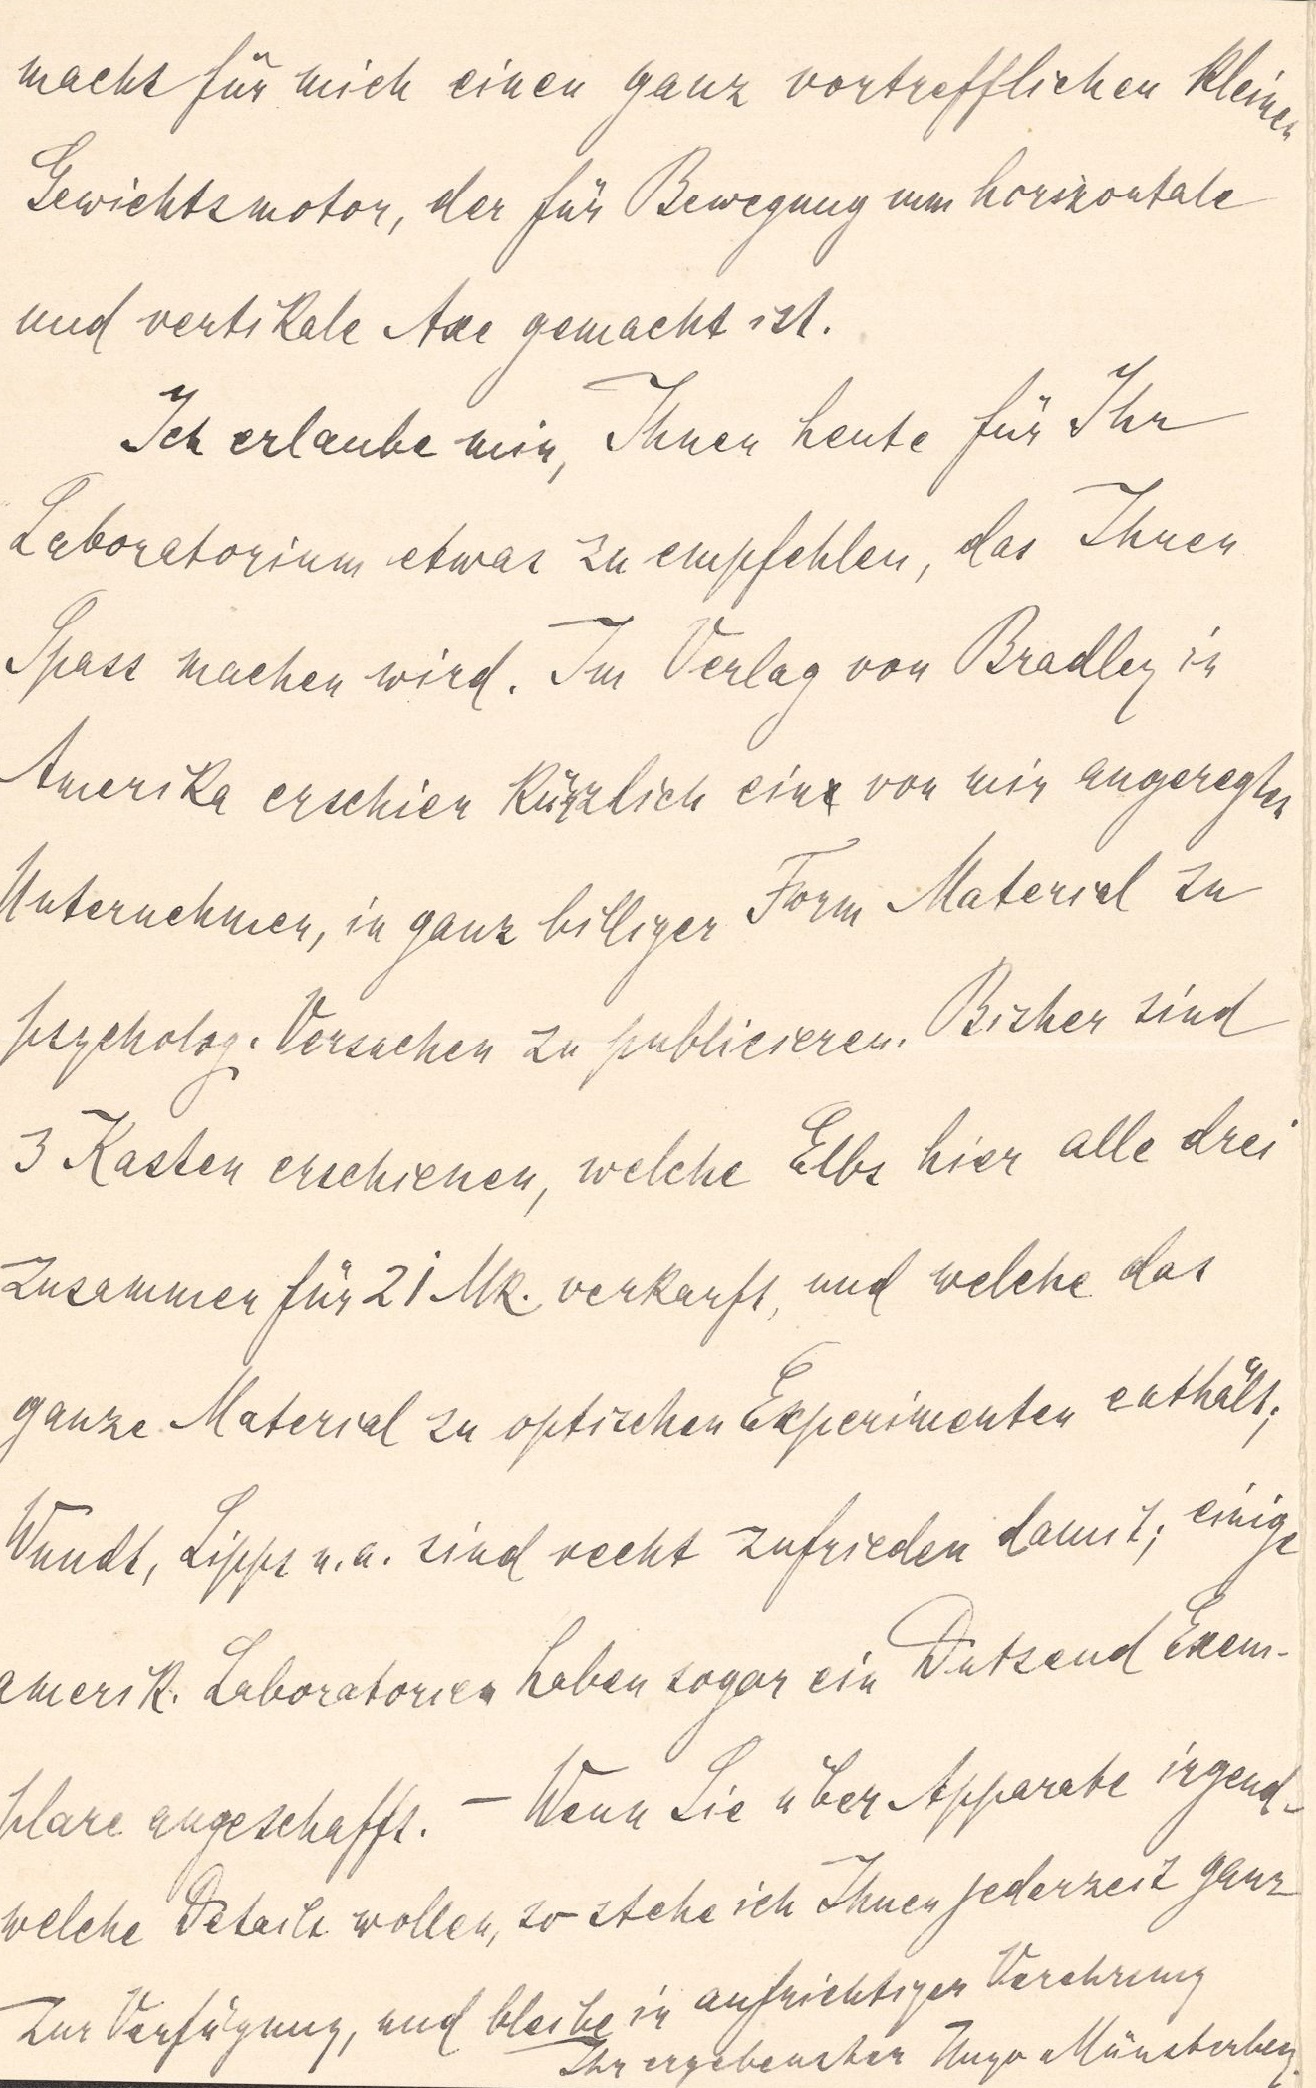 macht für mich einen ganz vortrefflichen kleinen
Gewichtsmotor, der für Bewegung um horizontale
und vertikale Axe gemacht ist.
Ich erlaube mir, Ihnen heute für Ihr
Laboratorium etwas zu empfehlen, das Ihnen
Spass machen wird. Im Verlag von Bradley in
Amerika erschien kürzlich ein von mir angeregtes
Unternehmen, in ganz billiger Form Material zu
psycholog. Versuchen zu publicieren. Bisher sind
3 Kasten erschienen, welche Elbs hier alle drei
zusammen für 21 Mk. verkauft, und welche das
ganze Material zu optischen Experimenten enthält;
Wundt, Lipps u.a. sind recht zufrieden damit; einige
amerik. Laboratorien haben sogar ein Dutzend Exem-
plare angeschafft. — Wenn Sie über Apparate irgend-
welche Details wollen, so stehe ich Ihnen jederzeit ganz
zur Verfügung, und bleibe in aufrichtiger Verehrung
Ihr ergebenster Hugo Münsterberg.